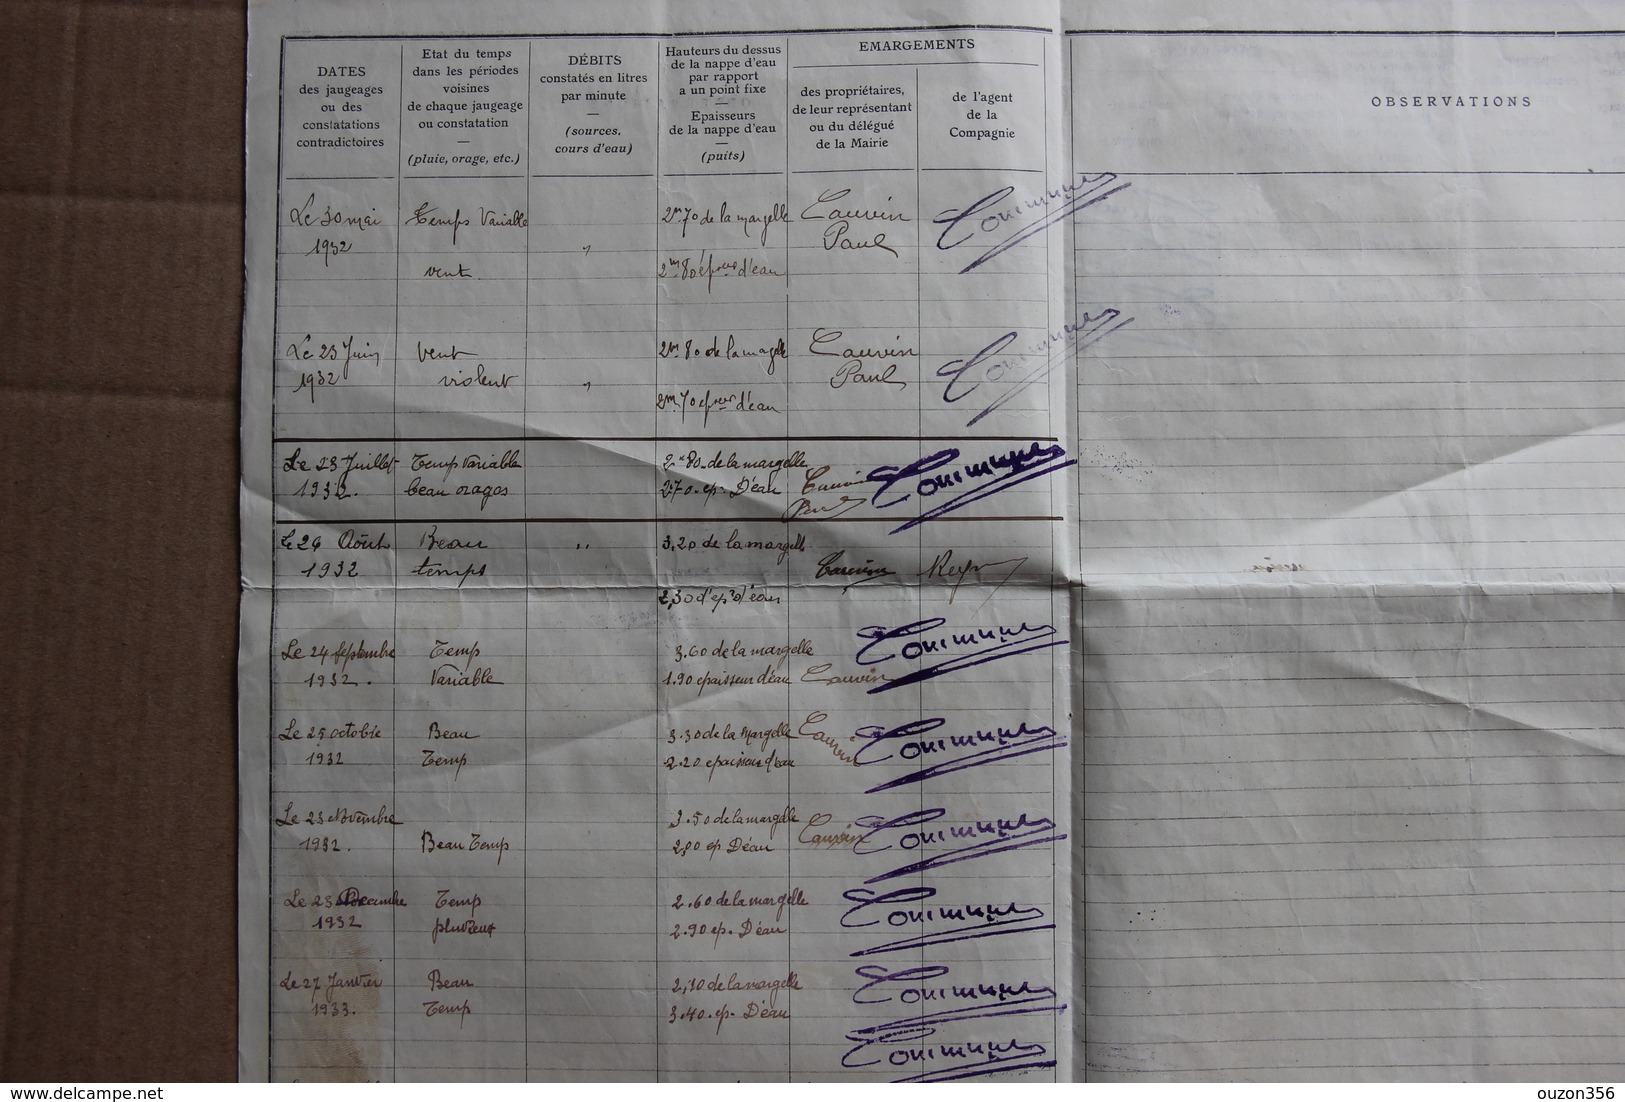 DATES
des jaugeages
ou des
constatations
contradictoires
Etat du temps
dans les périodes
voisines
de chaque jaugeage
ou constatation
—
(pluie, orage, etc.)
DÉBITS
constatés en litres
par minute
—
(sources,
cours d'eau)
Hauteurs du dessus
de la nappe d'eau
par rapport
a un point fixe
—
Epaisseurs
de la nappe d'eau
—
(puits)
EMARGEMENTS
des propriétaires,
de leur représentant
ou du délégué
de la Mairie
de l'agent
de la
Compagnie
OBSERVATIONS
Le 30 mai Temps Variable 2m70 de la margelle Cauvin
1932 " Paul
vent 2m80 épseur d'eau
Le 23 Juin Vent 2m80 de la margelle Cauvin
1932 violent " Paul
2m70 epseur d'eau
Le 23 Juillet Temp Variable 2m80 de la margelle
1932. beau orages 2.70. ep. D'éau Cauvin
Paul
Le 26 Août Beau " 3,20 de la margelle
1932 temps Cauvin
2,30 d'ep d'éau
Le 24 Septembre Temp 3.60 de la margelle
1932. Variable 1.90 epaisseur d'éau Cauvin
Le 25 octobre Beau 3.30 de la Margelle Cauvin
1932 Temp 2.20 epaisseur d'eau
Le 23 Novembre 3.50 de la margelle
1932. Beau Temp 2,00 ep D'éau Cauvin
Le 23 Decembre Temp 2.60 de la margelle
1932 pluvieux 2.90 ep. D'éau
Le 27 Janvier Beau 2,10 de la margelle
1933. Temp 3.40. ep. D'éau
delcampe.net
ouzon356